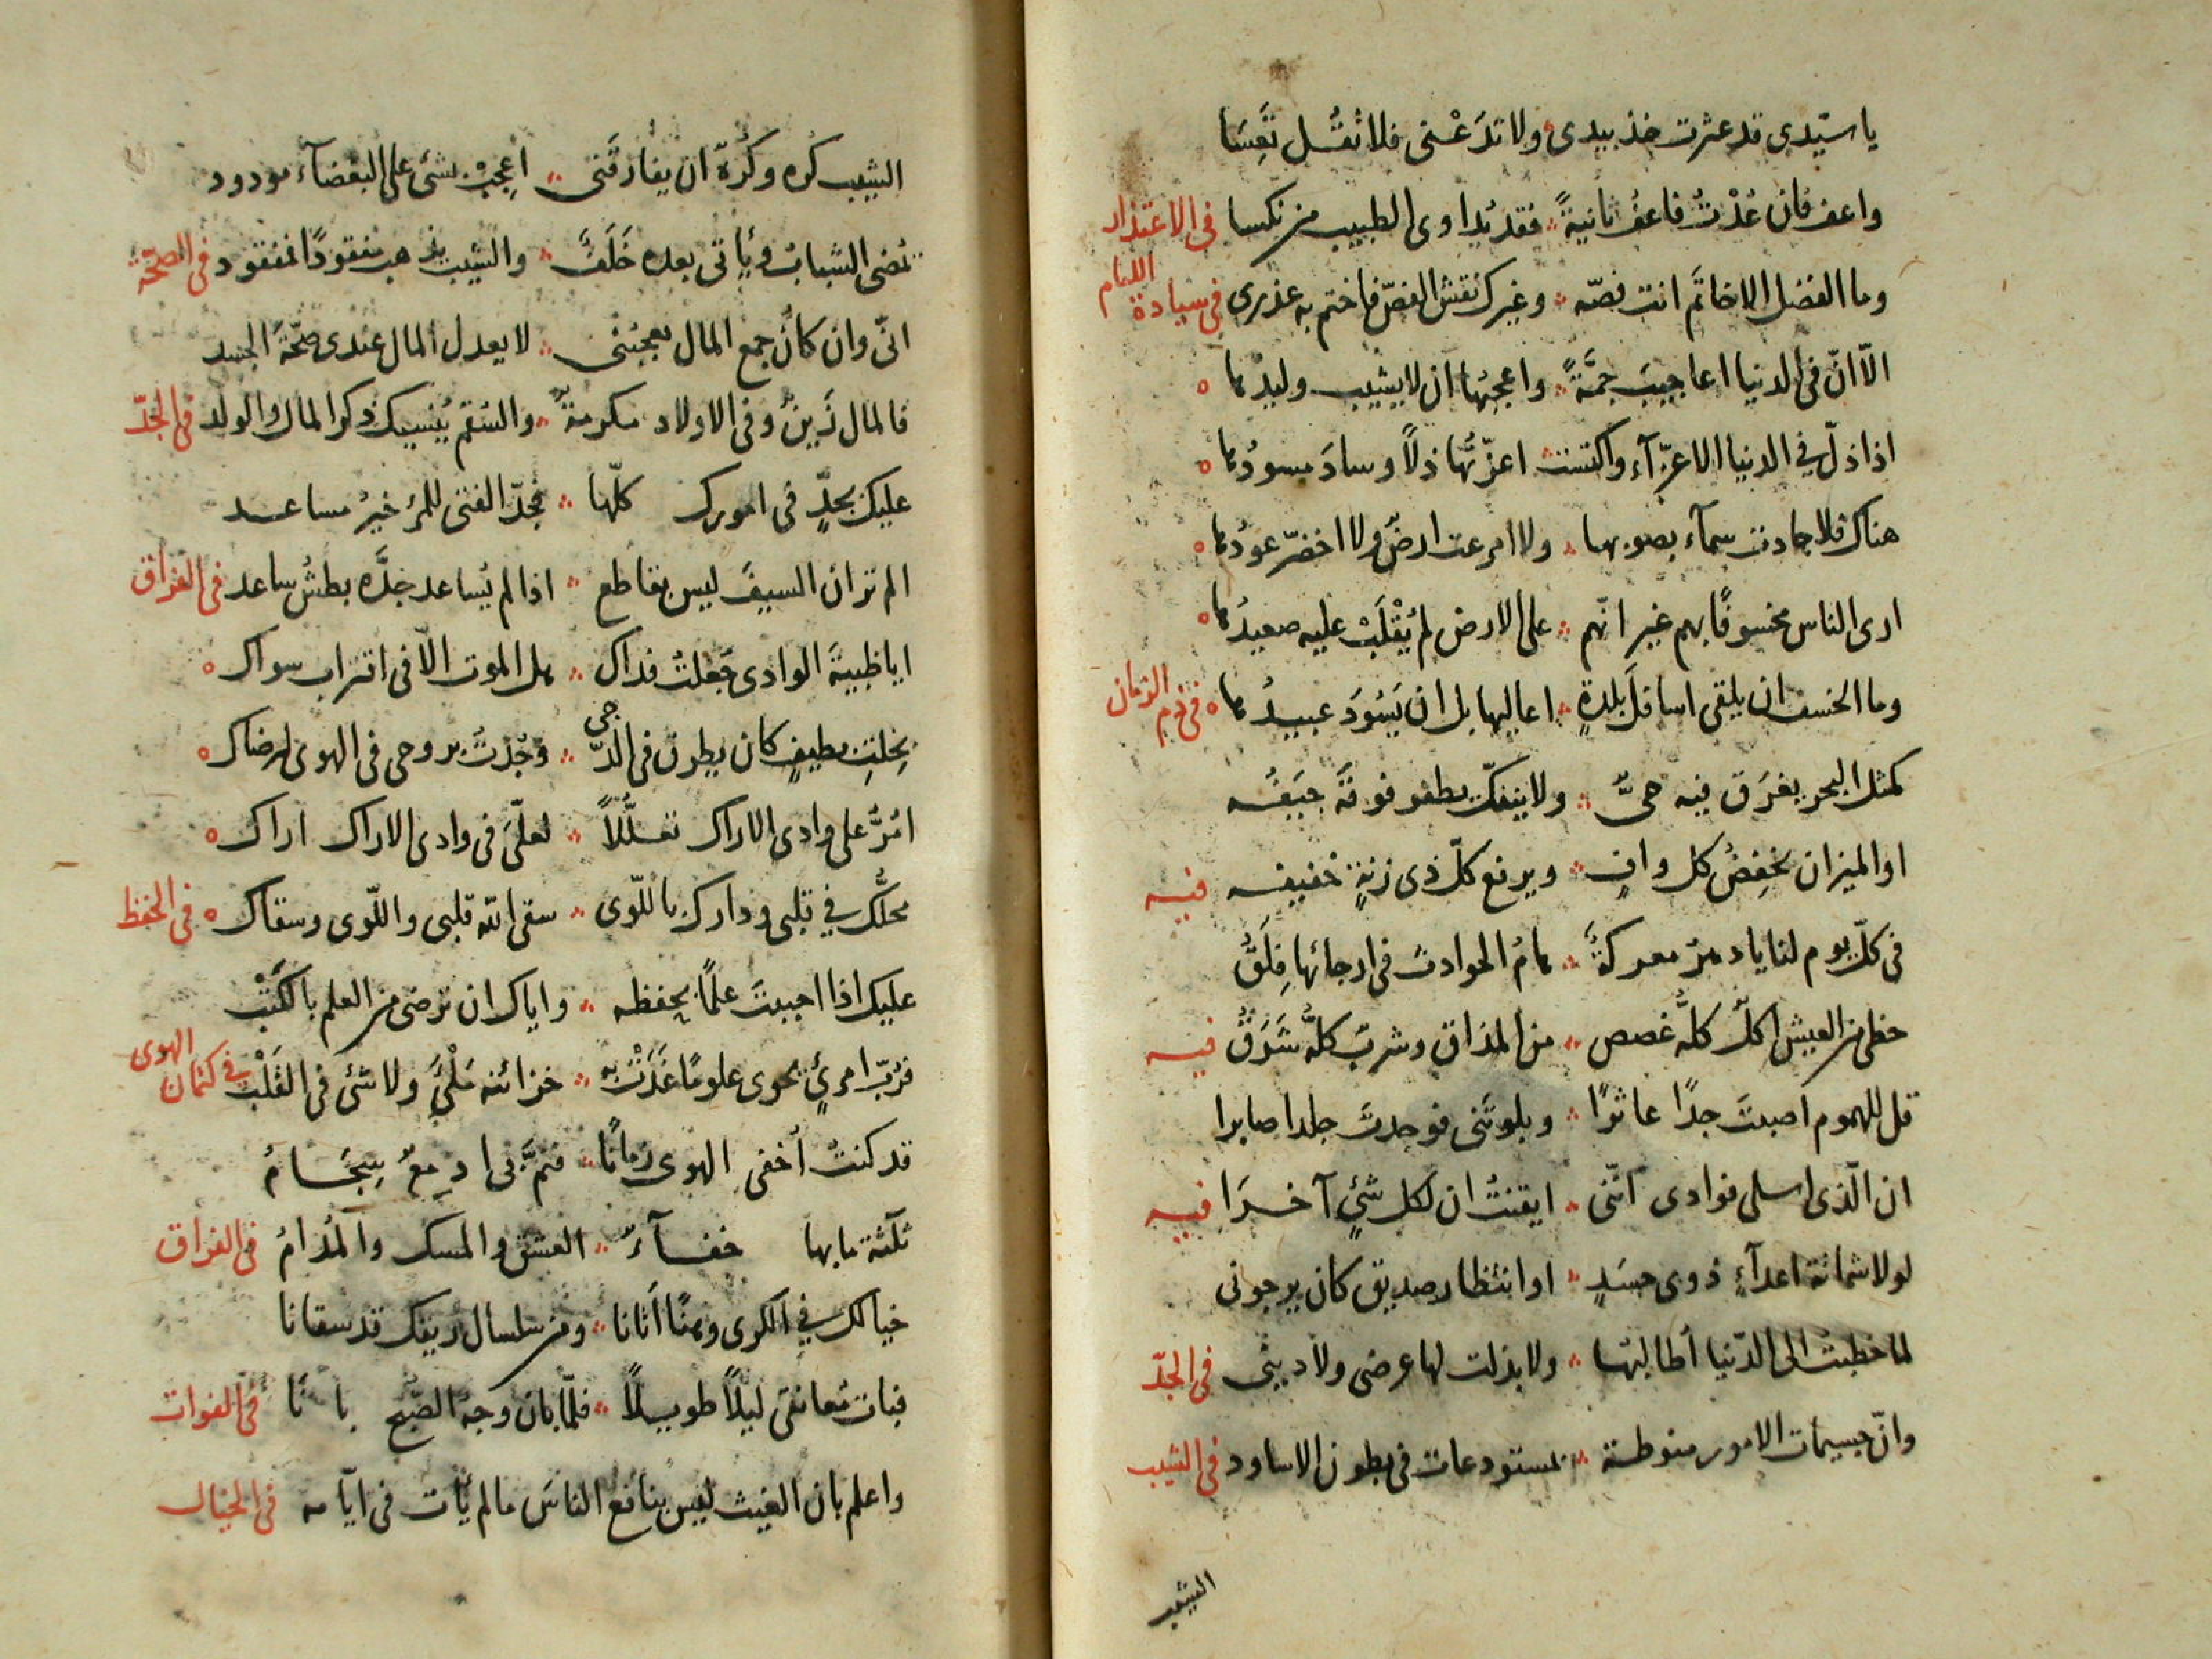 يا سيّدى قد عثرت خذ بيدى ولا تدَعْنى فلا تقُل تَعِسَا
واعف فان عُدْتُ فاعفُ ثانيةً فقد يُداوى الطبيب من نكسا فى الاعتذار
وما الفضل الا خاتَم انت فصّه وغيرك نقش الفصّ فاختم به عذرى فى سيادة اللئام
الّا انّ فى الدنيا اعاجيبَ جمَّةً واعجبُها ان لا يشيب وليدُها
اذا ذلّ فى الدنيا الاعزّآء واكتست اعزّتُها ذلاً وسادَ مسودُها
هناك فلا جادت سمآء بصوبها ولا امرعت ارضٌ ولا اخضرّ عودُها
ارى الناس مخسوفًا بهم غير انّهم على الارض لم يُقْلَبْ عليه صعيدُها
وما الخسف ان يلقى اسافلَ بلدةٍ اعاليها بل ان يَسُودَ عبيدُها فى ذم الزمان
كمثل البحر يغرَق فيه حىٌّ ولا ينفكّ يطفو فوقَه جيَفُه
او الميزان يخفِضُ كل وافٍ ويرفع كلّ ذى زنةٍ خفيفه فيه
فى كلّ يوم لنا يا دهر معركةٌ هامُ الحوادث فى ارجائها فِلَقٌ
حظى من العيش اكلٌ كلّه غصص من المذاق وشربٌ كلّه شَرَقٌ فيه
قل للهموم اصبتَ جدًا عاثرًا وبلوتَنى فوجدتَ جلدا صابرا
ان الّذى اسلى فوادى انّنى ايقنتُ ان لكل شئٍ آخرَا فيه
لولا شماتة اعدآءٍ ذوى حسَدٍ او انتظار صديق كان يرجونى
لما خطبتُ الى الدّنيا أطالبُها ولا بذلت لها عرضى ولا دينى فى الجدّ
وانّ جسيمات الامور منوطة بمستودعات فى بطون الاساود فى الشيب
الشيب
الشيب كره وكُرهٌ ان يفارقَنى اعجِبْ بشئ على البغضآء مودود
يمضى الشباب ويأتى بعده خَلَفٌ والشيب يذهب مفقودًا بمفقود فى الصحّة
انّى وان كان جمع المال يعجبُنى لا يعدل المال عندى صحّةَ الجسد
فالمال زَينٌ وفى الاولاد مكرمةٌ والسُقم يُنسيك ذكر المال والولد فى الجدّ
عليك بجدٍّ فى امورك كلّها فجدّ الفتى للمرء خيرُ مساعد
الم تر ان السيفَ ليس بقاطع اذا لم يُساعد جدَّه بطشُ ساعد فى الفراق
ايا ظبيةَ الوادى جُعلتُ فداك هل الموت الّا فى اقتراب سواك
بخلتِ بطيفٍ كان يطرق فى الدّجى وجُدْتُ بروحى فى الهوى لرضاك
امُرُّ على وادى الاراك تعلُّلاً لعلّىَ فى وادى الاراك اراك
محلُّك فى قلبى ودارك باللّوى سقى الله قلبى واللّوى وسقاك فى الحفظ
عليك اذا احببتَ علمًا بحفظه واياك ان ترضى من العلم بالكتْب
فرُبّ امرئٍ يحوى علومًا غَدَتْ به خزائنه مَلْئَى ولا شئ فى القَلْب فى كتمان الهوى
قد كنتُ اُخفى الهوى زمانًا فنمَّ بى ادمعٌ سِجَامُ
ثلثة ما بها خفآءٌ العشق والمسك والمُدامُ فى الفراق
خيالك فى الكرى وهنًا أتانا ومن سلسال ريقك قد سقانا
فبات مُعانقى ليلاً طويلاً فلمّا بان وجهُ الصّبح بانا فى الفوات
واعلم بان الغيث ليس بنافع الناسَ ما لم يأت فى ايّامه فى الخيال